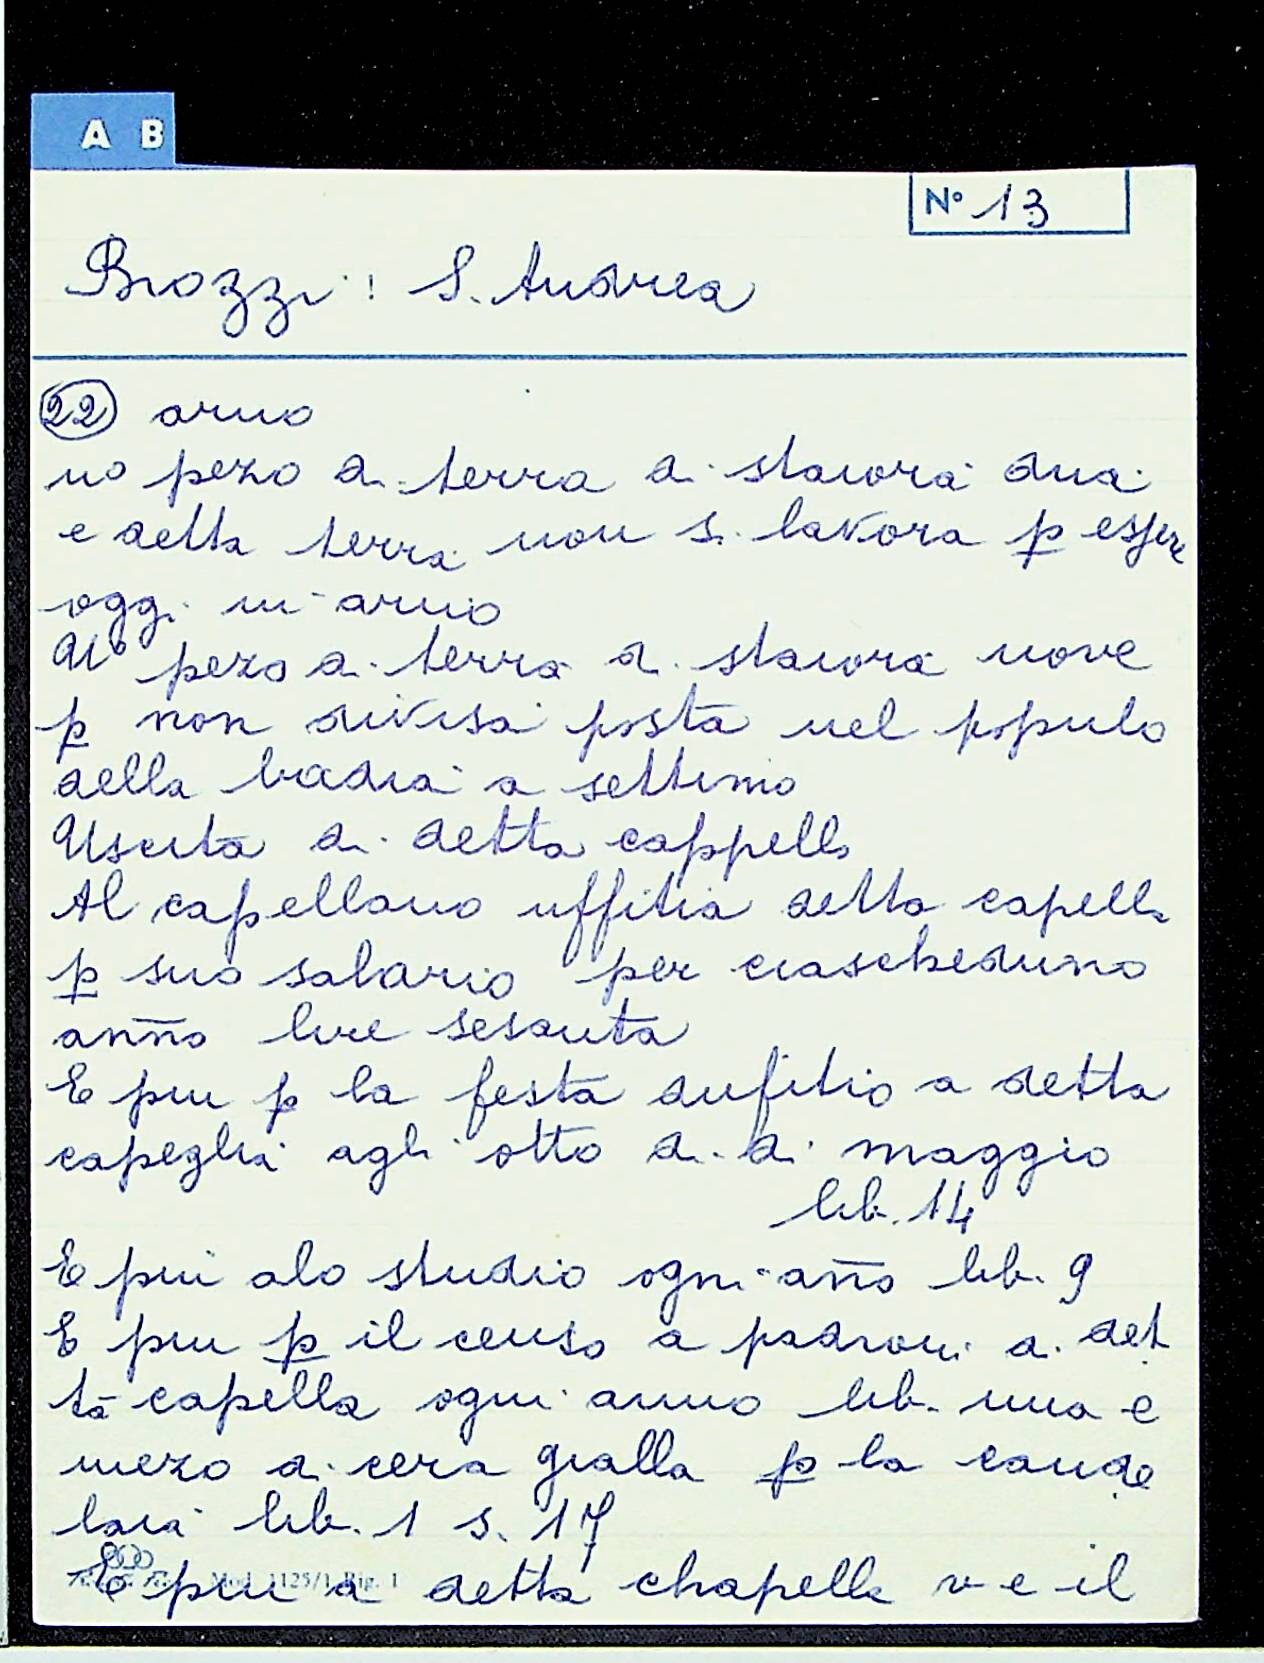 A B
N° 13
Brozzi: S. Andrea
22 arno
uo pezo di terra di staiora dua
e detta terra non si lavora p essere
oggi in arno
Uo pezo di terra di staiora nove
p non divisa posta nel popolo
della badia a settimo
Uscita di detta cappella
Al capellano uffitia detta capella
p suo salario per ciascheduno
anno lire sesanta
E piu p la festa dufitio a detta
capeglia agli otto di di maggio
lib. 14
E piu alo studio ogni anno lib. 9
E piu p il censo a padroni di det
ta capella ogni anno lib. una e
mezo di cera gialla p la cande
laia lib. 1 s. 17
Mod. 1125/1 Rip. 1
E piu a detta chapella v e il